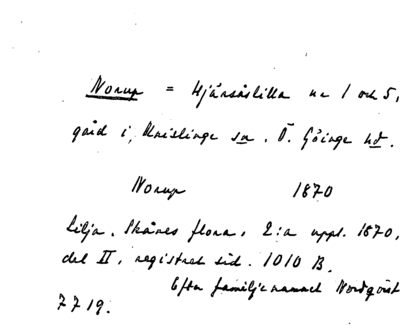 Norup = Hjärsåslilla nr 1 och 5,
gård i, Knislinge sn. Ö. Göinge hd.
Norup 1870
Lilja, Skånes flora, 2:a uppl. 1870,
del II, registret sid. 1010 B.
Efter familjenamnet Nordqvist
7719.